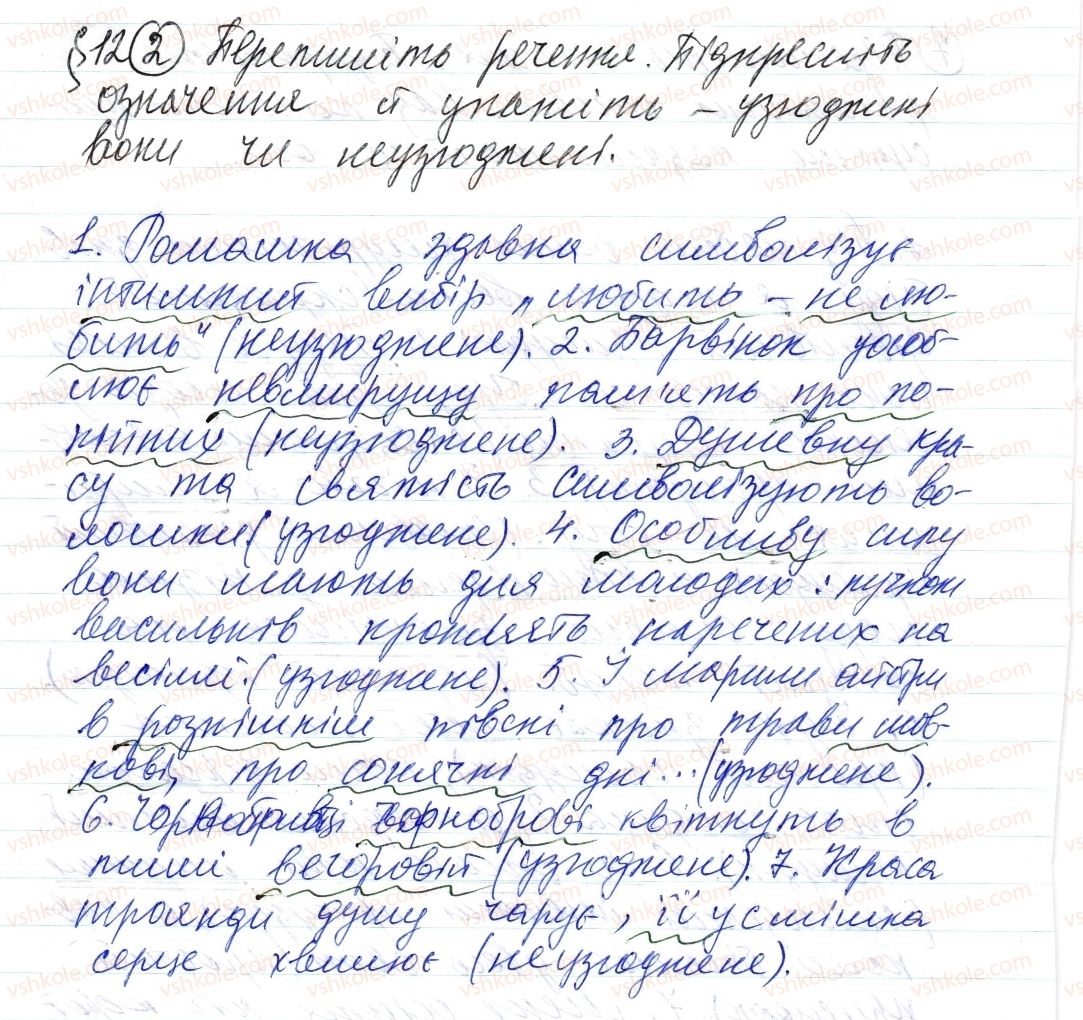 §12 2 Перепишіть речення. Підкресліть
означення й укажіть – узгоджені
вони чи неузгоджені.
1. Ромашка здавна символізує
інтимний вибір „любить – не лю-
бить" (неузгоджене). 2. Барвінок уособ-
лює невмирущу пам'ять про по-
кійних (неузгоджене). 3. Душевну кра-
су та святість символізують во-
лошки (узгоджене). 4. Особливу силу
вони мають для молодих: пучком
васильків кроплять наречених на
весіллі. (узгоджене). 5. І марили айстри
в розкішнім півсні про трави шов-
кові, про сонячні дні... (узгоджене).
6. Чорнобривці чорноброві квітнуть в
тиші вечоровій (узгоджене). 7. Краса
троянди душу чарує, її усмішка
серце хвилює (неузгоджене).